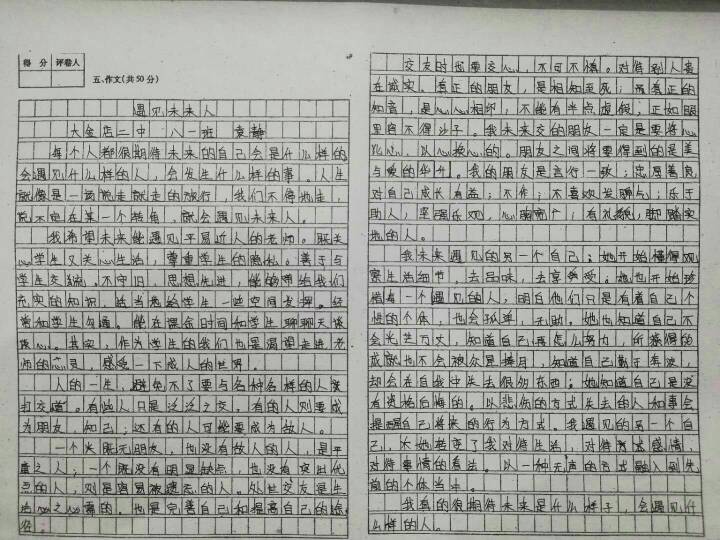 得 分 评卷人
五、作文(共50分)
遇见未来人
大金店二中 八一班 袁静
每个人都很期待未来的自己会是什么样的
会遇见什么样的人，会发生什么样的事。人生
就像是一场说走就走的旅行，我们不得地走，
说不定在某一个转角，就会遇见未来人。
我希望未来能遇见平易近人的老师。既关
心学生又关心生活，尊重学生的隐私。善于与
学生交流。不守旧，思想先进，能够带给我们
充实的知识，适当地给学生一些空间发挥。经
常和学生沟通。能在课余时间和学生聊聊天谈
谈心。其实，作为学生的我们也是渴望走进老
师的心灵，感受一下成人的世界。
人的一生，避免不了要与各种各样的人
打交道。有些人只是泛泛之交，有的人则要成
为朋友，知己；还有的人可能要成为敌人。
一个人既无朋友，也没有敌人的人，是平
庸之人；一个既没有明显缺点，也没有突出优
点的人，则是容易被遗忘的人。处世交友是生
活必需的。也是完善自己和提高自己的途
径。
交友时也要交心，不可不慎。对待别人贵
在诚实。真正的朋友，是相知至死；而真正的
知音，是心心相印，不能有半点虚假；正如眼
里容不得沙子。我未来交的朋友一定是要将心
比心，以心换心的。朋友之间将要得到的是美
与爱的华升。我的朋友是言行一致；忠厚善良
对自己成长有益；不作；不喜欢发脾气；乐于
助人，坚强乐观，心胸宽广；有礼貌，脚踏实
地的人。
我未来遇见的另一个自己：她开始懂得观
察生活细节，去品味，去享受爱；她也开始珍
惜每一个遇见的人，明白他们只是有着自己个
性的个体，也会孤单，无助。她也知道自己不
会光芒万丈，知道自己再怎么努力，所获得的
成就也不会被众星捧月，知道自己勤于奔波，
却会在自我中失去很多东西；她知道自己是没
有资格后悔的。以悲伤的方式失去的人和事会
提醒自己将来的行为方式。我遇见的另一个自
己，大概改变了我对待生活，对待情感，
对待事情的看法。以一种无声的方式融入到先
前的个体当中。
我真的很期待未来是什么样子，会遇见什
么样的人。